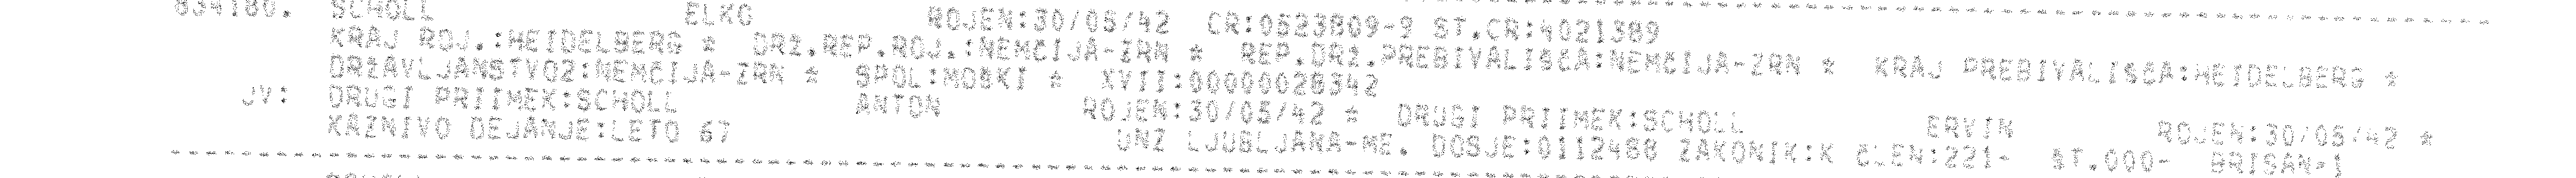 834180. SCHOLL ELKG ROJEN:30/05/42 CR:0523809-9 ST.CR:4021389
KRAJ ROJ.:HEIDELBERG * DRŽ.REP.ROJ.:NEMČIJA-ZRN * REP.DRŽ.PREBIVALIŠČA:NEMČIJA-ZRN * KRAJ PREBIVALIŠČA:HEIDELBERG *
DRŽAVLJANSTVO2:NEMČIJA-ZRN * SPOL:MOŠKI * XVII:00000028342
JV: DRUGI PRIIMEK:SCHOLL ANTON ROJEN:30/05/42 * DRUGI PRIIMEK:SCHOLL ERVIN ROJEN:30/05/42 *
KAZNIVO DEJANJE:LETO 67 UNZ LJUBLJANA-ME. DOSJE:0112488 ZAKONIK:K ČLEN:221- ST.000- BRISAN=1